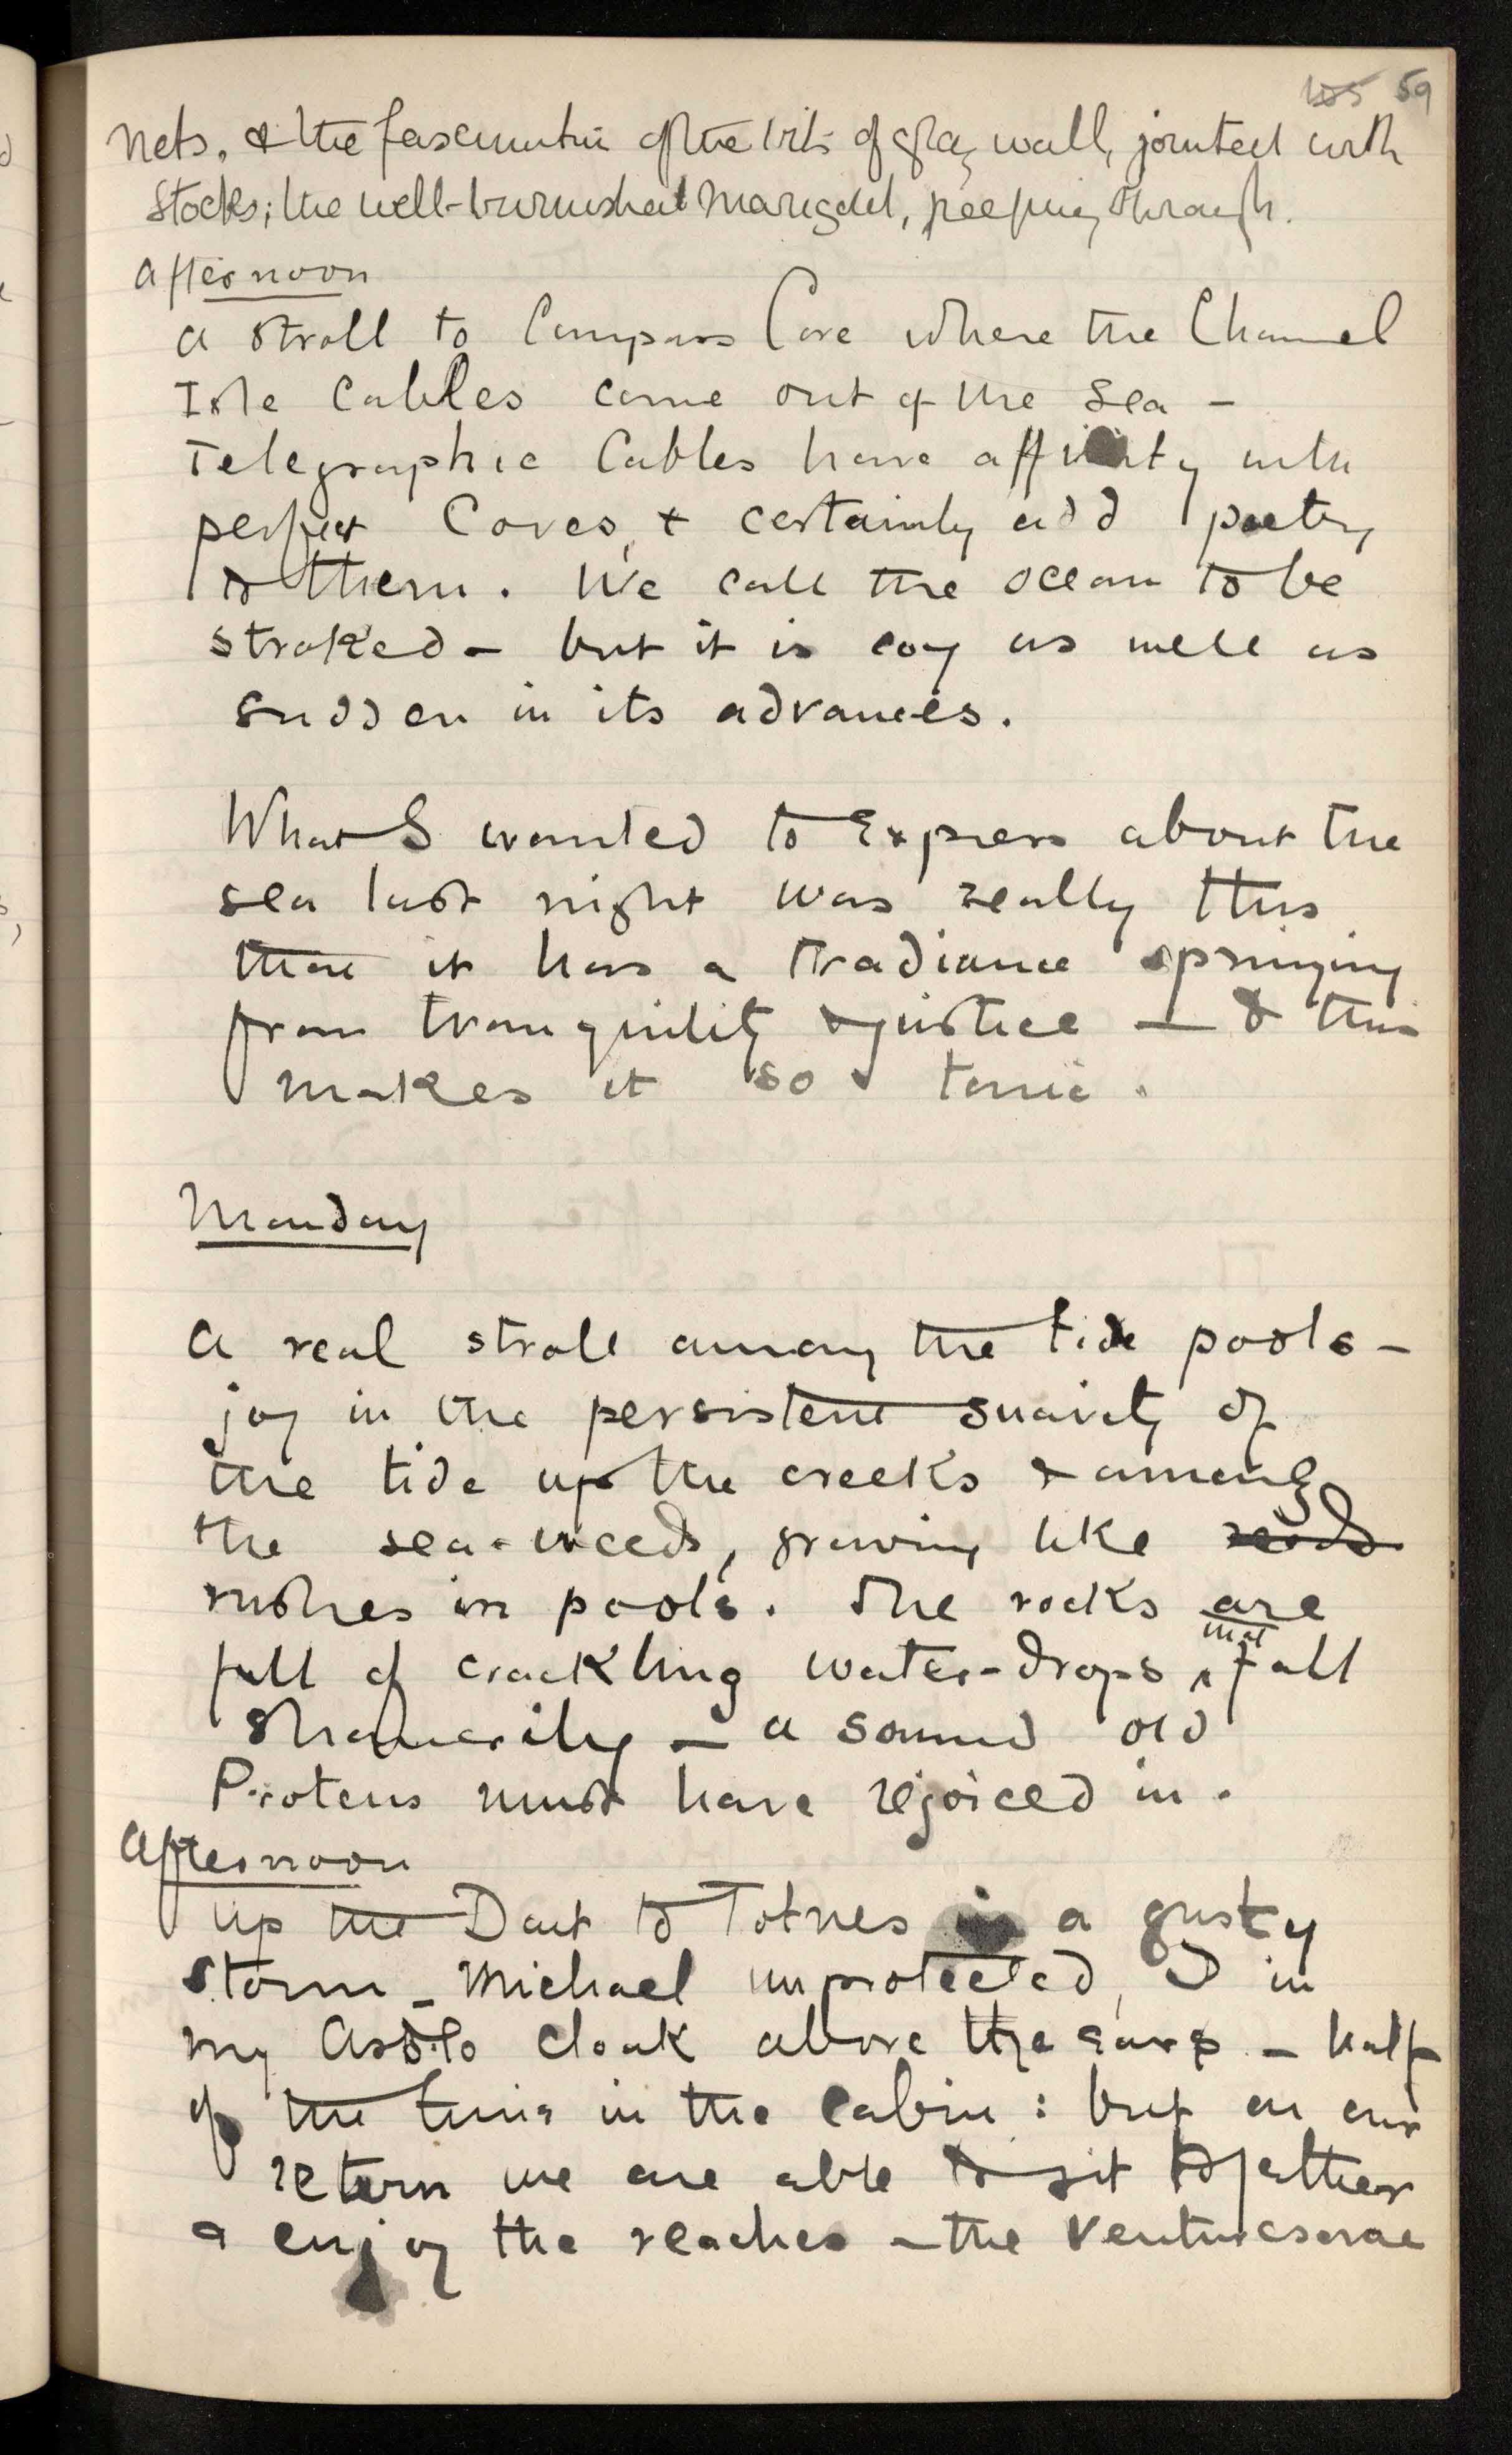 105 59
nets, & the fascination of the bits of gray wall, jointed with
stocks; the well-burnished marigold, peeping through.
Afternoon
A stroll to Compass Cove where the Channel
Isle Cables come out of the sea –
Telegraphic Cables have affinity with
perfect Coves, & certainly add poetry
to them. We call the ocean to be
stroked – but it is coy as well as
sudden in its advances.
What I wanted to express about the
sea last night was really this
that it has a radiance springing
from tranquility & justice – & this
makes it so tonic.
Monday
A real stroll among the tide pools –
joy in the persistent suavity of
the tide up the creeks & among
the sea-weeds, growing like reeds
rushes in pools. The rocks are
full of crackling water-drops that fall
showerily – a sound old
Proteus must have rejoiced in.
Afternoon
Up the Dart to Totnes in a gusty
storm – Michael unprotected, I in
my Asolo cloak above the ears – half
of the time in the cabin: but on our
return we are able to sit together
& enjoy the reaches – the venturesome